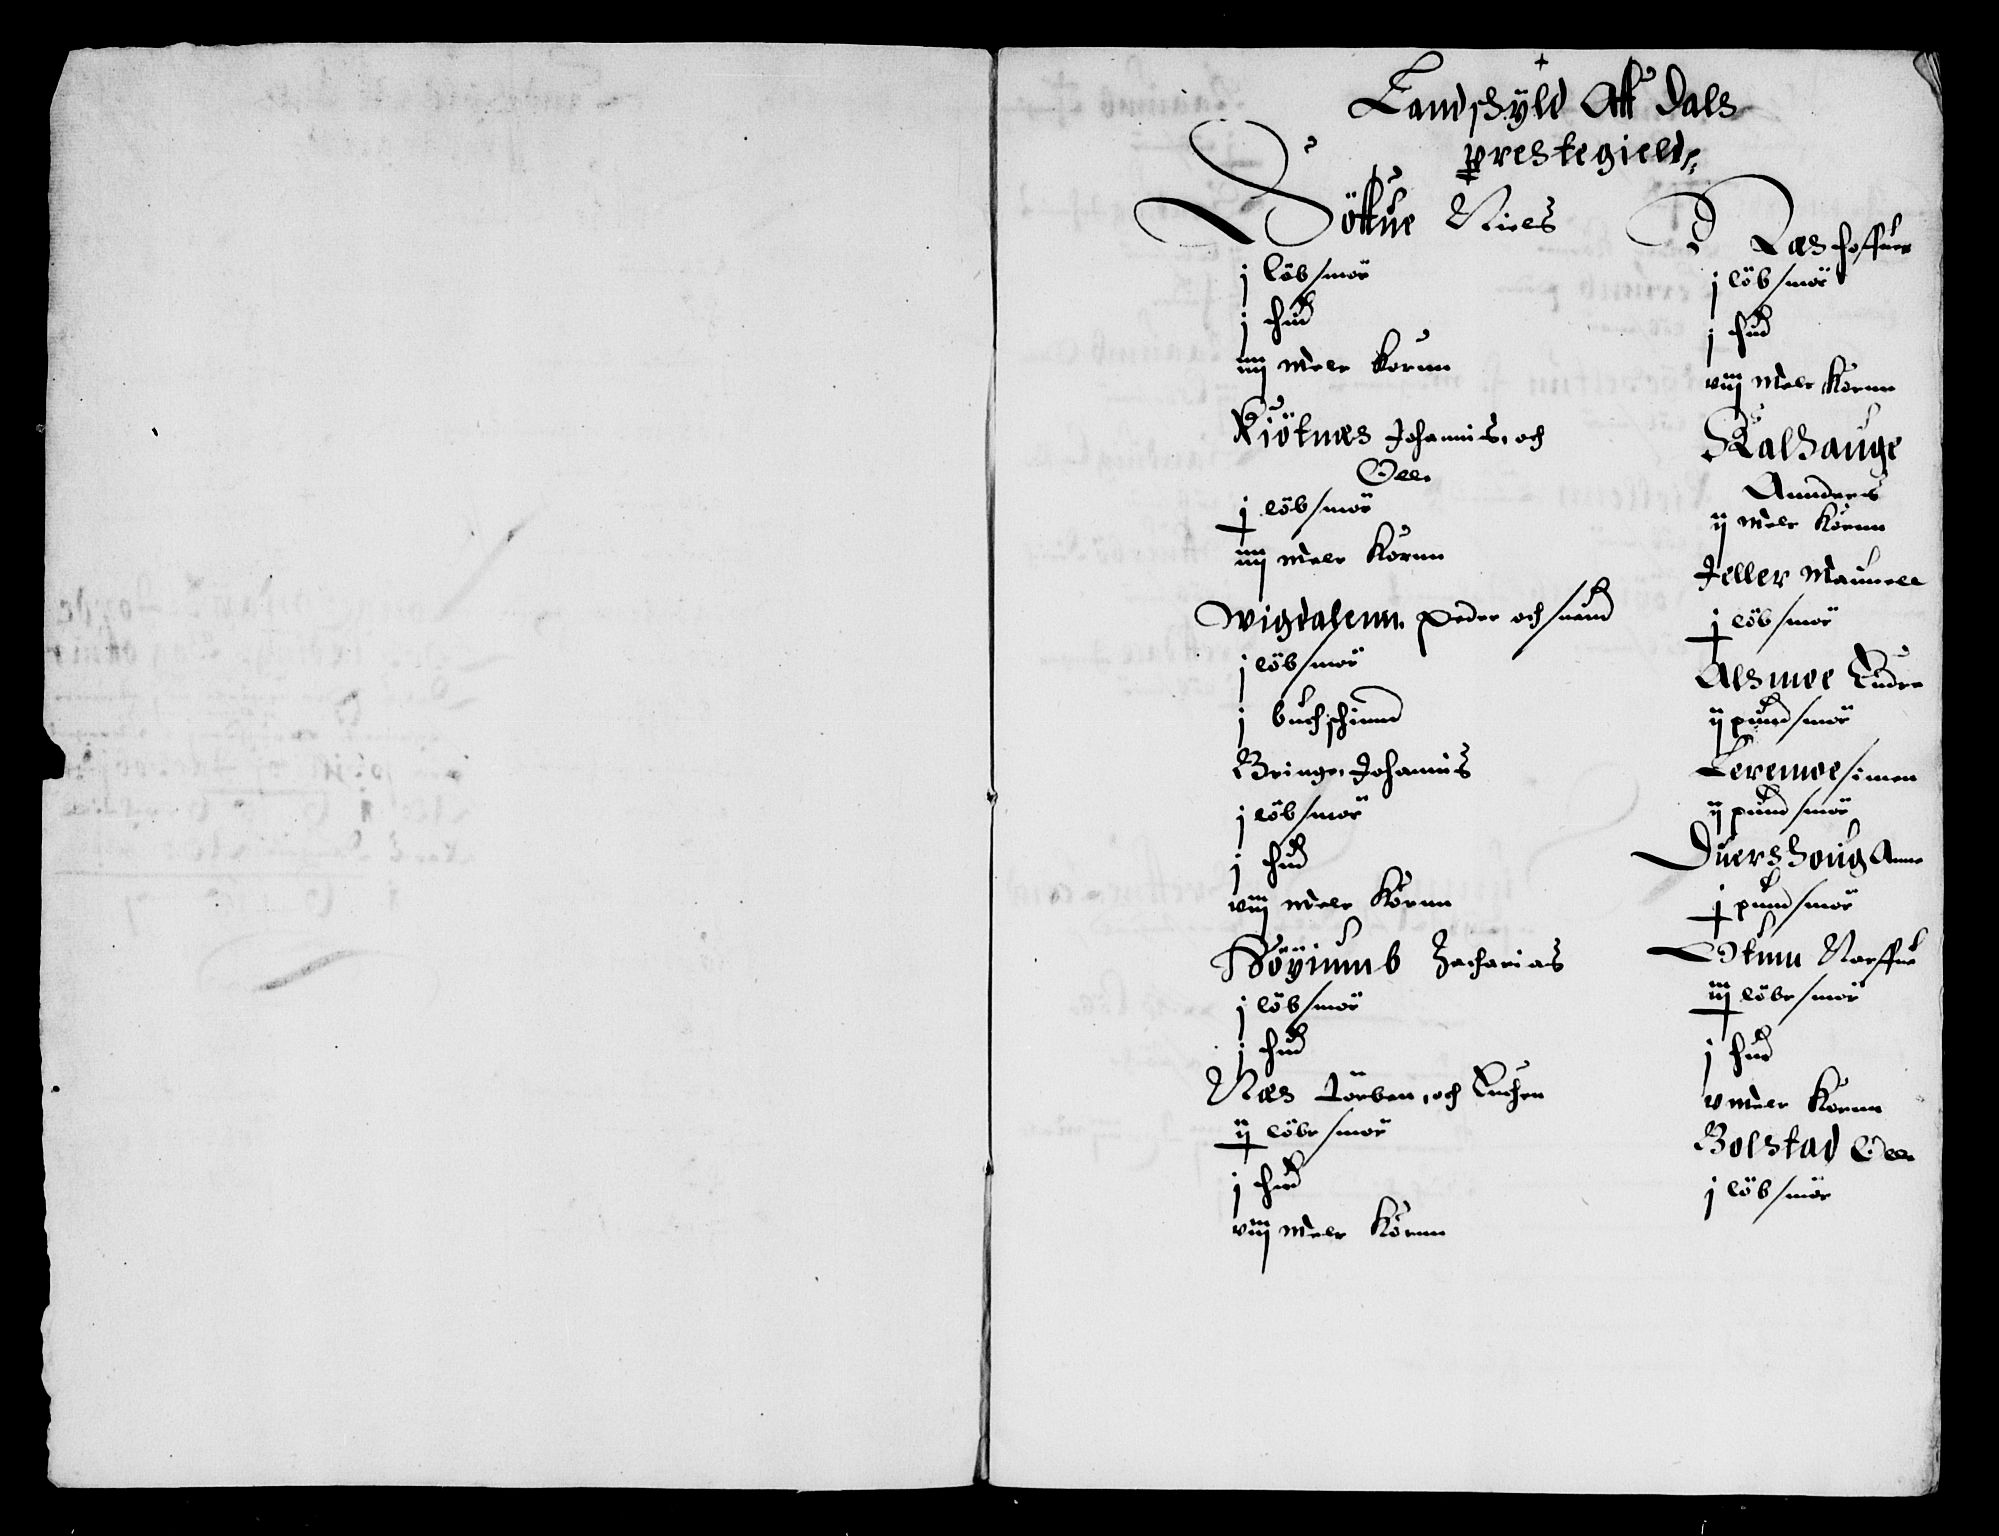 Landschÿld Aff Dals
prestegield,
Söffue Niels
j löb smör
j hud
iiij meler Kornn
Kiötnæs Johannis, och
Oell.
j löb smör
iiij meler Kornn
Wigdalenn. Peder och suend
j löb smör
j buchschinnd
Bringe, Johannis
j löb smör
j hud
viij meler Kornn
Höyiumb Zacharias
j löb smör
j hud
Næs Törben, och
ij löbe smör
j hud
viij meler Kornn
j löb smör
j hud
viij meler Kornn
Skalhauge
Annders
ij meler Kornn
Teller
j löb smör
Alsmoe Endre
ij pund smör
Leremoe simen
ij pund smör
Duershoug Anne
j pund smör
Otum Narffue
iij löbe smör
j hud
v meler Kornn
Bolstad Oell.
j löb smör